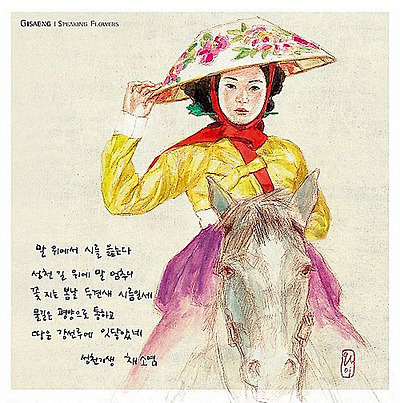 GISAENG | SPEAKING FLOWERS
말 위에서 시를 읊는다
성천 길 위에 말 멈추니
꽃 지는 봄날 두견새 시름일세
물길은 평양으로 통하고
땅은 강선루에 잇닿았네
성천기생 채소염